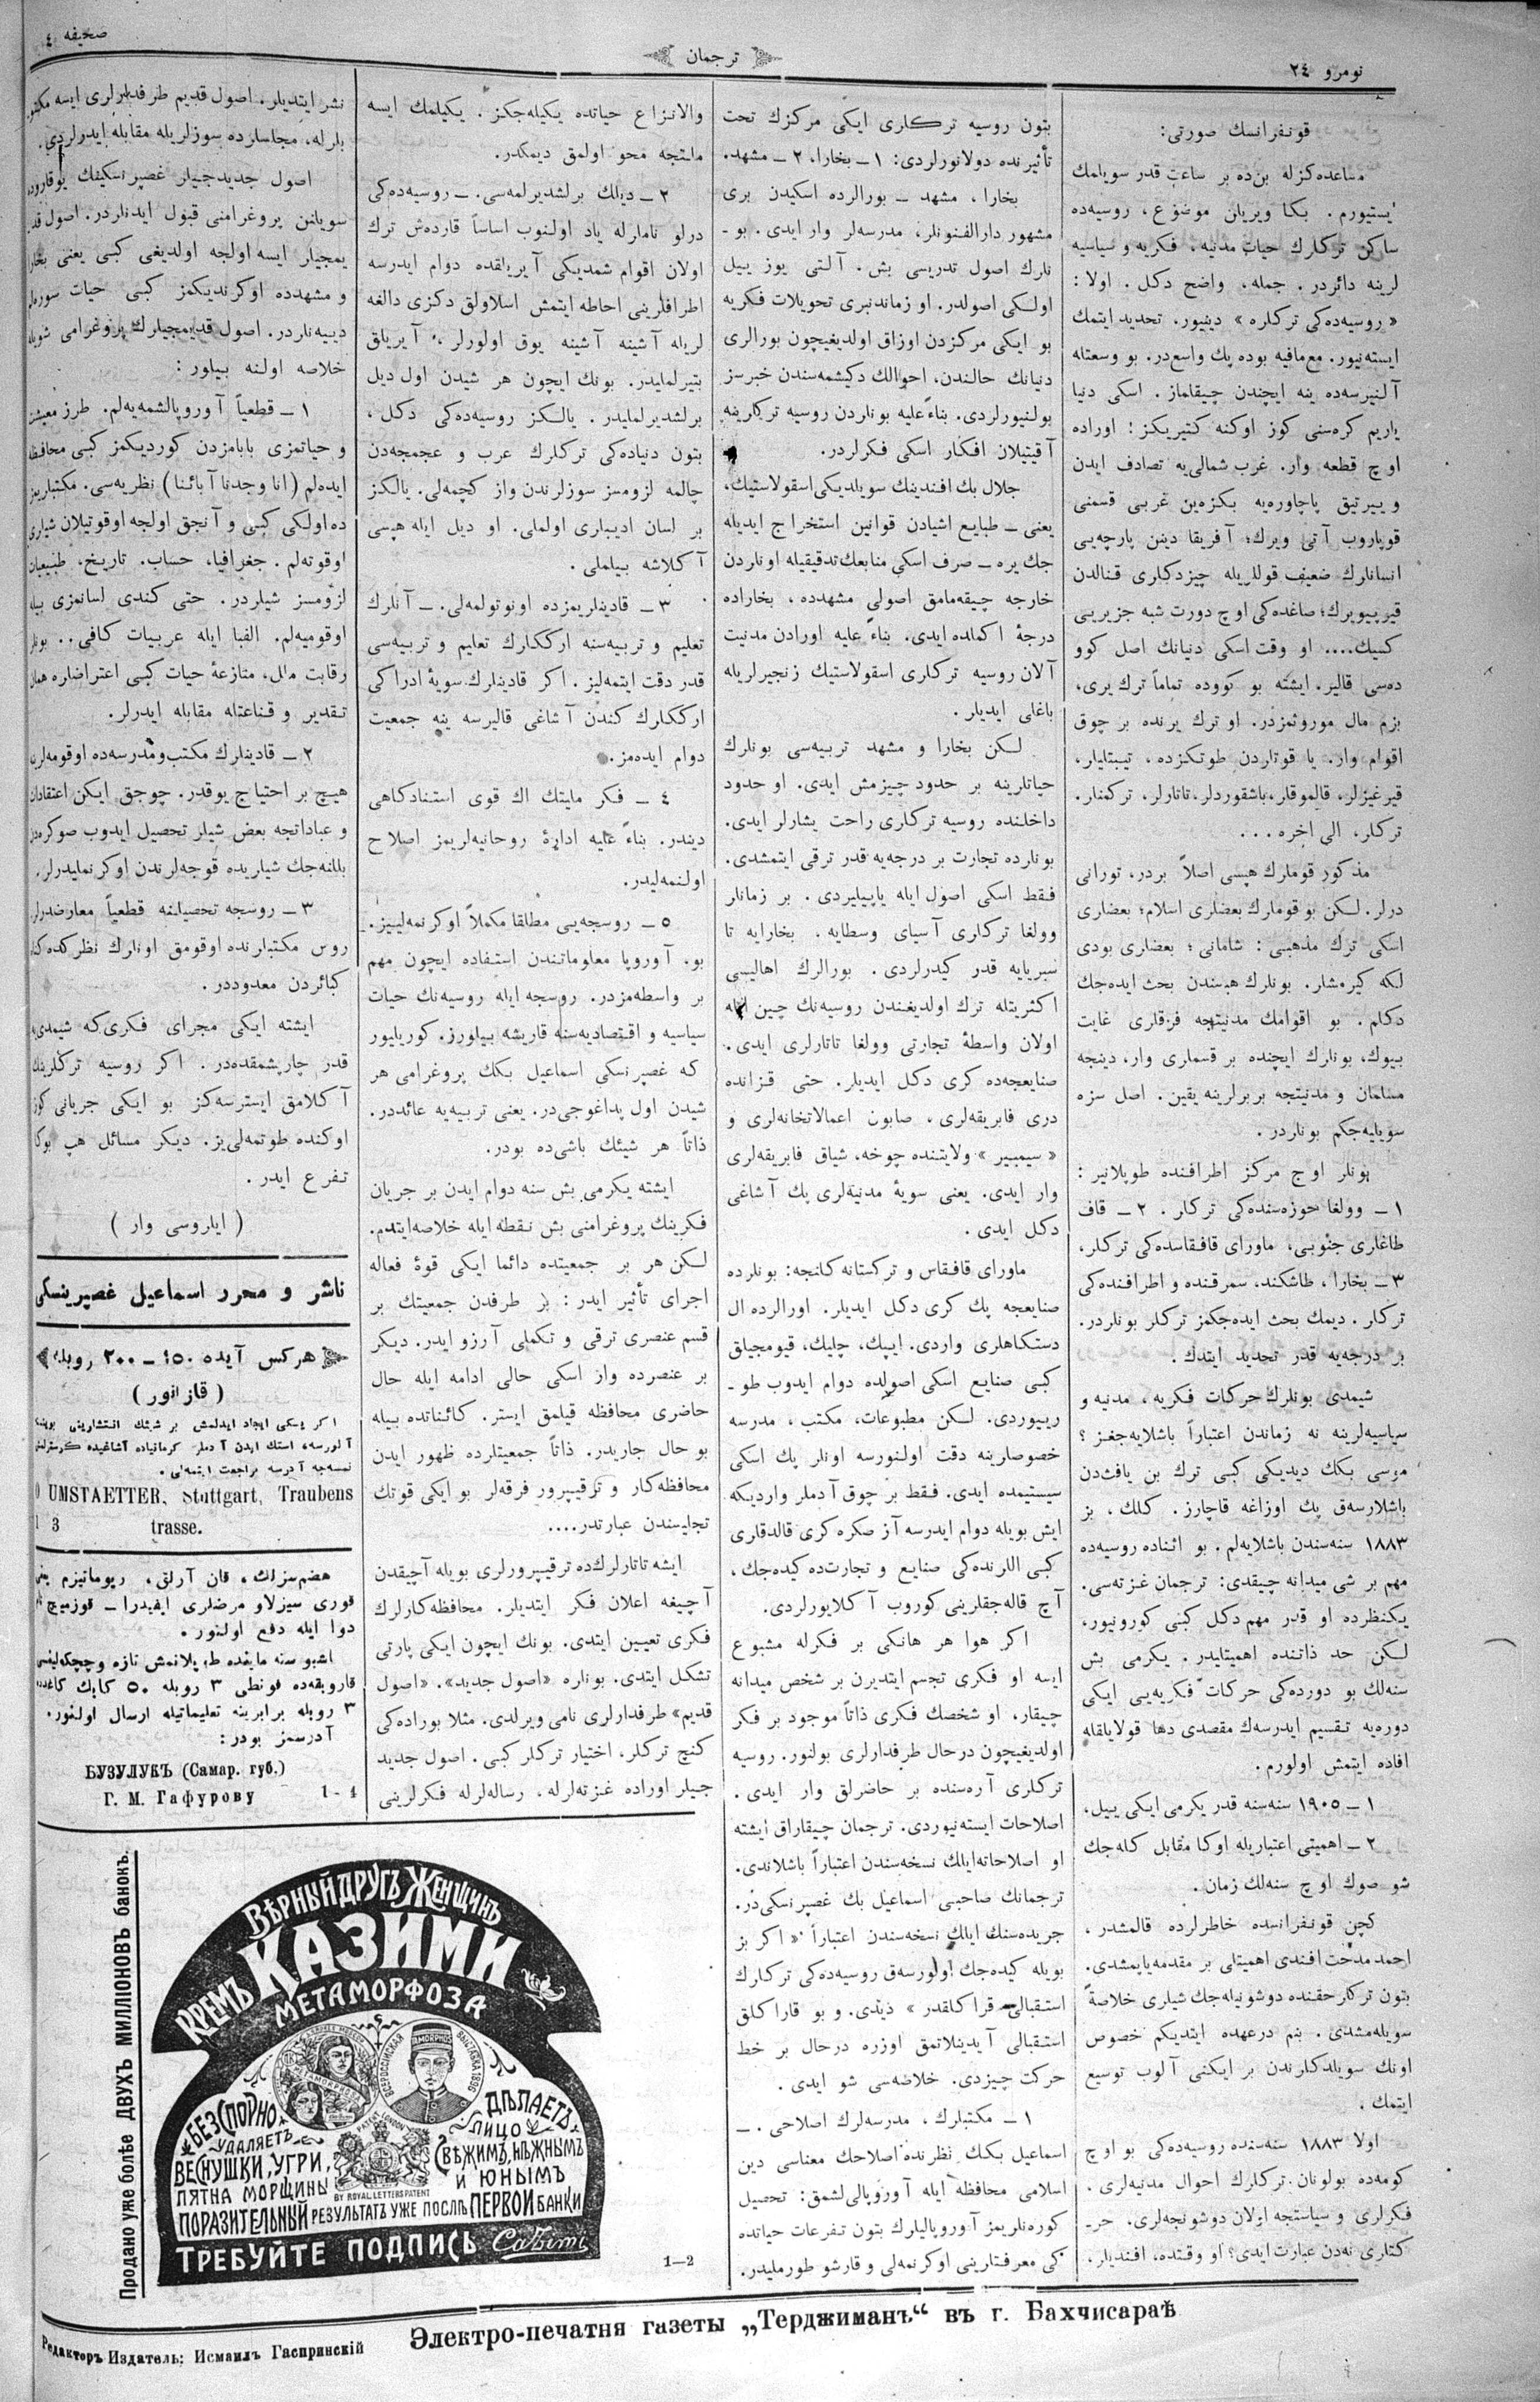 نومرو ٢٤
ترجمان
صحیفه ٤
قونفرانسك صورتی:
مساعده‌كزله بن‌ده بر ساعت قدر سویلمك
ایستیورم. بكا ویریلن موضوع، روسیه‌ده
ساكن تركلرك حیات مدنیه، فكریه و سیاسیه
لرینه دائردر. جمله، واضح دكل. اولا:
«روسیه‌ده‌كی تركلره» دینیور. تحدید ایتمك
ایسته‌نیور. مع‌مافیه بوده پك واسع‌در. بو وسعتله
آلنیرسه‌ده ینه ایچندن چیقلماز. اسكی دنیا
یاریم كره‌سنی كوز اوكنه كتیریكز؛ اوراده
اوچ قطعه وار. غرب شمالی‌یه تصادف ایدن
و ییرتیق پاچاوره‌یه بكزه‌ین غربی قسمنی
قوپاروب آتی ویرك؛ آفریقا دینن پارچه‌یی
انسانلرك ضعیف قوللریله چیزدكلری قنالدن
قیریویرك؛ صاغده‌كی اوچ دورت شبه جزیره‌یی
كسیك.... او وقت اسكی دنیانك اصل كوو
ده‌سی قالیر. ایشته بو كووده تماماً ترك یری،
بزم مال موروثمزدر. او ترك یرنده بر چوق
اقوام وار. یا قوتلردن طوتكزده، تیبتلیلر،
قیرغیزلر، قالموقلر، باشقوردلر، تاتارلر، تركمنلر.
تركلر، الی اخره...
مذكور قوملرك هپسی اصلاً بردر، تورانی
درلر. لكن بو قوملرك بعضلری اسلام؛ بعضلری
اسكی ترك مذهبی: شامانی؛ بعضلری بودی
لكه كیرمشلر. بونلرك هپسندن بحث ایده‌جك
دكلم. بو اقوامك مدنیتجه فرقلری غایت
بیوك، بونلرك ایچنده بر قسملری وار، دینجه
مسلمان و مدنیتجه بربرلرینه یقین. اصل سزه
سویلیه‌جكم بونلردر.
بونلر اوچ مركز اطرافنده طوپلانیر:
١ـ وولغا حوزه‌سنده‌كی تركلر. ٢ـ قاف
طاغلری جنوبی، ماورای قافقاسده‌كی تركلر،
٣ـ بخارا، طاشكند، سمرقنده و اطرافنده‌كی
تركلر. دیمك بحث ایده‌جكمز تركلر بونلردر.
بر درجه‌یه قدر تحدید ایتدك.
شیمدی بونلرك حركات فكریه، مدنیه و
سیاسیه‌لرینه نه زماندن اعتباراً باشلایه‌جغز؟
موسی بكك دیدیكی كبی ترك بن یافث‌دن
باشلارسه‌ق پك اوزاغه قاچارز. كلك، بز
١٨٨٣ سنه‌سندن باشلایه‌لم. بو اثناده روسیه‌ده
مهم بر شی میدانه چیقدی: ترجمان غزته‌سی.
یكنظرده او قدر مهم دكل كبی كورونیور،
لكن حد ذاتنده اهمیتلیدر. یكرمی بش
سنه‌لك بو دورده‌كی حركات فكریه‌یی ایكی
دوره‌یه تقسیم ایدرسه‌ك مقصدی دها قولایلقله
افاده ایتمش اولورم.
١ـ ١٩٠٥ سنه‌سنه قدر یكرمی ایكی ییل،
٢ـ اهمیتی اعتباریله اوكا مقابل كله‌جك
شو صوك اوچ سنه‌لك زمان.
كچن قونفرانسده خاطرلرده قالمشدر،
احمد مدحت افندی اهمیتلی بر مقدمه یاپمشدی.
بتون تركلر حقنده دوشونیله‌جك شیلری خلاصةً
سویله‌مشدی. بنم درعهده ایتدیكم خصوص
اونك سویلدكلرندن بر ایكنی آلوب توسیع
ایتمك.
اولا ١٨٨٣ سنه‌سنده روسیه‌ده‌كی بو اوچ
كومه‌ده بولونان تركلرك احوال مدنیه‌لری.
فكرلری و سیاستجه اولان دوشونجه‌لری، حر‌ـ
كتلری نه‌دن عبارت ایدی؟ او وقتده، افندیلر،
بتون روسیه تركلری ایكی مركزك تحت
تأثیرنده دولانورلردی: ١ـ بخارا، ٢ـ مشهد.
بخارا، مشهد ـ بورالرده اسكیدن بری
مشهور دارالفنونلر، مدرسه‌لر وار ایدی. بو‌ـ
نلرك اصول تدریسی بش. آلتی یوز ییل
اولكی اصولدر. او زماندنبری تحویلات فكریه
بو ایكی مركزدن اوزاق اولدیغیچون بورالری
دنیانك حالندن، احوالك دكیشمه‌سندن خبرسز
بولنیورلردی. بناءً علیه بونلردن روسیه تركلرینه
آقیتیلان افكار اسكی فكرلردر.
جلال بك افندینك سویلدیكی اسقولاستیك،
یعنی ـ طبایع اشیادن قوانین استخراج ایدیله
جك یره ـ صرف اسكی منابعك تدقیقیله اونلردن
خارجه چیقه‌مامق اصولی مشهدده، بخاراده
درجهٔ اكملده ایدی. بناءً علیه اورادن مدنیت
آلان روسیه تركلری اسقولاستیك زنجیرلریله
باغلی ایدیلر.
لكن بخارا و مشهد تربیه‌سی بونلرك
حیاتلرینه بر حدود چیزمش ایدی. او حدود
داخلنده روسیه تركلری راحت یشارلر ایدی.
بونلرده تجارت بر درجه‌یه قدر ترقی ایتمشدی.
فقط اسكی اصول ایله یاپیلیردی. بر زمانلر
وولغا تركلری آسیای وسطایه، بخارایه تا
سبریایه قدر كیدرلردی. بورالرك اهالیسی
اكثریتله ترك اولدیغندن روسیه‌نك چین ایله
اولان واسطهٔ تجارتی وولغا تاتارلری ایدی.
صنایعجه‌ده كری دكل ایدیلر. حتی قزانده
دری فابریقه‌لری، صابون اعمالاتخانه‌لری و
«سیمبیر» ولایتنده چوخه، شیاق فابریقه‌لری
وار ایدی. یعنی سویهٔ مدنیه‌لری پك آشاغی
دكل ایدی.
ماورای قافقاس و تركستانه كلنجه: بونلرده
صنایعجه پك كری دكل ایدیلر. اورالرده ال
دستكاهلری واردی. ایپك، چلیك، قیومجیلق
كبی صنایع اسكی اصولده دوام ایدوب طو‌ـ
رییوردی. لكن مطبوعات، مكتب، مدرسه
خصوصلرینه دقت اولنورسه اونلر پك اسكی
سیستیمده ایدی. فقط بر چوق آدملر واردیكه
ایش بویله دوام ایدرسه آز صكره كری قالدقلری
كبی اللرنده‌كی صنایع و تجارت‌ده كیده‌جك،
آچ قاله‌جقلرینی كوروب آكلایورلردی.
اكر هوا هر هانكی بر فكرله مشبوع
ایسه او فكری تجسم ایتدیرن بر شخص میدانه
چیقار، او شخصك فكری ذاتاً موجود بر فكر
اولدیغیچون درحال طرفدارلری بولنور. روسیه
تركلری آره‌سنده بر حاضرلق وار ایدی.
اصلاحات ایسته‌نیوردی. ترجمان چیقاراق ایشته
او اصلاحاته ایلك نسخه‌سندن اعتباراً باشلاندی.
ترجمانك صاحبی اسماعیل بك غصپرنسكی‌در.
جریده‌سنك ایلك نسخه‌سندن اعتباراً «اكر بز
بویله كیده‌جك اولورسه‌ق روسیه‌ده‌كی تركلرك
استقبالی قراكلقدر» دیدی. و بو قاراكلق
استقبالی آیدینلاتمق اوزره درحال بر خط
حركت چیزدی. خلاصه‌سی شو ایدی.
١ـ مكتبلرك، مدرسه‌لرك اصلاحی. ـ
اسماعیل بكك نظرنده اصلاحك معناسی دین
اسلامی محافظه ایله آوروپالی‌لشمق: تحصیل
كوره‌نلریمز آوروپالیلرك بتون تفرعات حیاتده
كی معرفتلرینی اوكرنمه‌لی و قارشو طورملیدر.
والانزاع حیاتده یكیله‌جكز. یكیلمك ایسه
ملتجه محو اولمق دیمكدر.
٢ـ دیلك برلشدیرلمه‌سی. ـ روسیه‌ده‌كی
درلو ناملرله یاد اولنوب اساساً قارده‌ش ترك
اولان اقوام شمدیكی آیریلقده دوام ایدرسه
اطرافلرینی احاطه ایتمش اسلاولق دكزی دالغه
لریله آشینه آشینه یوق اولورلر، آیریلق
بتیرلمایدر. بونك ایچون هر شیدن اول دیل
برلشدیرلمایدر. یالكز روسیه‌ده‌كی دكل،
بتون دنیاده‌كی تركلرك عرب و عجمجه‌دن
چالمه لزومسز سوزلرندن واز كچمه‌لی. یالكز
بر لسان ادبیلری اولملی. او دیل ایله هپسی
آكلاشه بیلملی.
٣ـ قادینلریمزده اونوتولمه‌لی. ـ آنلرك
تعلیم و تربیه‌سنه ارككلرك تعلیم و تربیه‌سی
قدر دقت ایتمه‌لیز. اكر قادینلرك سویهٔ ادراكی
ارككلرك كندن آشاغی قالیرسه ینه جمعیت
دوام ایده‌مز.
٤ـ فكر ملیتك اك قوی استنادكاهی
دیندر. بناءً علیه ادارهٔ روحانیه‌لریمز اصلاح
اولنمه‌لیدر.
٥ـ روسجه‌یی مطلقا مكملاً اوكرنمه‌لییز.
بو، آوروپا معلوماتندن استفاده ایچون مهم
بر واسطه‌مزدر. روسجه ایله روسیه‌نك حیات
سیاسیه و اقتصادیه‌سنه قاریشه بیلورز. كوریلیور
كه غصپرنسكی اسماعیل بكك پروغرامی هر
شیدن اول پداغوجی‌در. یعنی تربیه‌یه عائددر.
ذاتاً هر شیئك باشی‌ده بودر.
ایشته یكرمی بش سنه دوام ایدن بر جریان
فكرینك پروغرامنی بش نقطه ایله خلاصه ایتدم.
لكن هر بر جمعیتده دائما ایكی قوهٔ فعاله
اجرای تأثیر ایدر: بر طرفدن جمعیتك بر
قسم عنصری ترقی و تكملی آرزو ایدر. دیكر
بر عنصرده واز اسكی حالی ادامه ایله حال
حاضری محافظه قیلمق ایستر. كائناتده بیله
بو حال جاریدر. ذاتاً جمعیتلرده ظهور ایدن
محافظه‌كار و ترقیپرور فرقه‌لر بو ایكی قوتك
تجلیسندن عبارتدر....
ایشه تاتارلرك‌ده ترقیپرورلری بویله آچیقدن
آچیغه اعلان فكر ایتدیلر. محافظه‌كارلرك
فكری تعیین ایتدی. بونك ایچون ایكی پارتی
تشكل ایتدی. بونلره «اصول جدید». «اصول
قدیم» طرفدارلری نامی ویرلدی. مثلا بوراده‌كی
كنج تركلر، اختیار تركلر كبی. اصول جدید
جیلر اوراده غزته‌لرله، رساله‌لرله فكرلرینی
نشر ایتدیلر. اصول قدیم طرفدارلری ایسه مكتو
بلرله، مجلسلرده سوزلریله مقابله ایدرلردی.
اصول جدیدجیلر غصپرنسكینك یوقاروده
سویلنن پروغرامنی قبول ایدنلردر. اصول قد
یمجیلر ایسه اولجه اولدیغی كبی یعنی بخارا
و مشهدده اوكرندیكمز كبی حیات سوره‌لم
دییه‌نلردر. اصول قدیمجیلرك پروغرامی شویله
خلاصه اولنه بیلور:
١ـ قطعیاً آوروپالشمه‌یه‌لم. طرز معیشت
و حیاتمزی بابامزدن كوردیكمز كبی محافظه
ایده‌لم (انا وجدنا آبائنا) نظریه‌سی. مكتبلریمز
ده اولكی كبی و آنجق اولجه اوقوتیلان شیلری
اوقوته‌لم. جغرافیا، حساب. تاریخ، طبیعیات
لزومسز شیلردر. حتی كندی لسانمزی بیله
اوقومیه‌لم. الفبا ایله عربیات كافی.. بونلر
رقابت ملل، منازعهٔ حیات كبی اعتراضلره همان
تقدیر و قناعتله مقابله ایدرلر.
٢ـ قادینلرك مكتب و مدرسه‌ده اوقومه‌لرینه
هیچ بر احتیاج یوقدر. چوجق ایكن اعتقادات
و عباداتجه بعض شیلر تحصیل ایدوب صوكره‌دن
بللنه‌جك شیلریده قوجه‌لرندن اوكرنملیدرلر.
٣ـ روسجه تحصیلنه قطعیاً معارضدرلر.
روس مكتبلرنده اوقومق اونلرك نظركده كناه
كبائردن معدوددر.
ایشته ایكی مجرای فكری‌كه شیمدی‌یه
قدر چارپشمقده‌در. اكر روسیه تركلرینك
آكلامق ایسترسه‌كز بو ایكی جریانی كوز
اوكنده طوتمه‌لی‌یز. دیكر مسائل هپ بوكا
تفرع ایدر.
(ایلروسی وار)
ناشر و محرر اسماعیل غصپرینسكی
هركس آیده ١٥٠ـ٢٠٠ روبله
(قازانور)
اكر یكی ایجاد ایدلمش بر شیئك انتشارینی بوینه
آلورسه، استك ایدن آدملر كرمانیاده آشاغیده كوسترلمش
نمسه‌جه آدرسه مراجعت ایتمه‌لی.
O UMSTAETTER, Stuttgart, Traubens
1 3 trasse.
هضم‌سزلك، قان آزلق، ریوماتیزم یعنی
قوری سیزلاو مرضلری ایفیدرا ـ قوزمیچ نام
دوا ایله دفع اولنور.
اشبو سنه ماینده طوپلانمش تازه و چچكه‌لیسی
قاروبقه‌ده فونطی ٣ روبله ٥٠ كاپك كاغدده
٣ روبله برابرینه تعلیماتیله ارسال اولنور.
آدرسمز بودر:
БУЗУЛУКЪ (Самар. губ.)
Г. М. Гафурову 1-4
Продано уже болѣе ДВУХЪ МИЛЛІОНОВЪ банокъ.
ВѢРНЫЙ ДРУГЪ ЖЕНЩИНЪ
КРЕМЪ КАЗИМИ
МЕТАМОРФОЗА
ВСЕРОССІЙСКАЯ ВЫСТАВКА 1896
METAMORPHOSE
БЕЗСПОРНО
УДАЛЯЕТЪ
ВЕСНУШКИ, УГРИ,
ПЯТНА МОРЩИНЫ
PATENT LONDON
BY ROYAL LETTERS PATENT
ДѢЛАЕТЪ
ЛИЦО
СВѢЖИМЪ, НѢЖНЫМЪ
И ЮНЫМЪ
ПОРАЗИТЕЛЬНЫЙ РЕЗУЛЬТАТЪ УЖЕ ПОСЛѢ ПЕРВОЙ БАНКИ
ТРЕБУЙТЕ ПОДПИСЬ Casimi
1—2
Электро-печатня газеты „Терджиманъ“ въ г. Бахчисараѣ
Редакторъ Издатель: Исмаилъ Гаспринскій